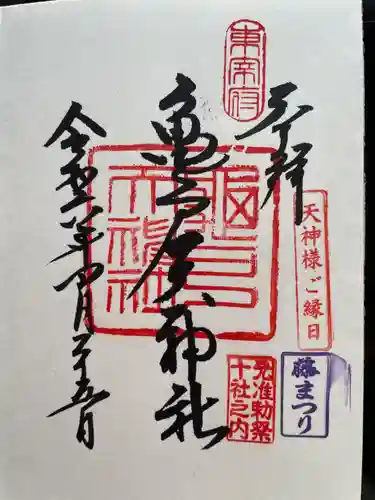 東宰府
奉拝
天神様ご縁日
藤まつり
元准勅祭
十社之内
亀戸天神社
亀戸
天神社
令和八年四月二十五日